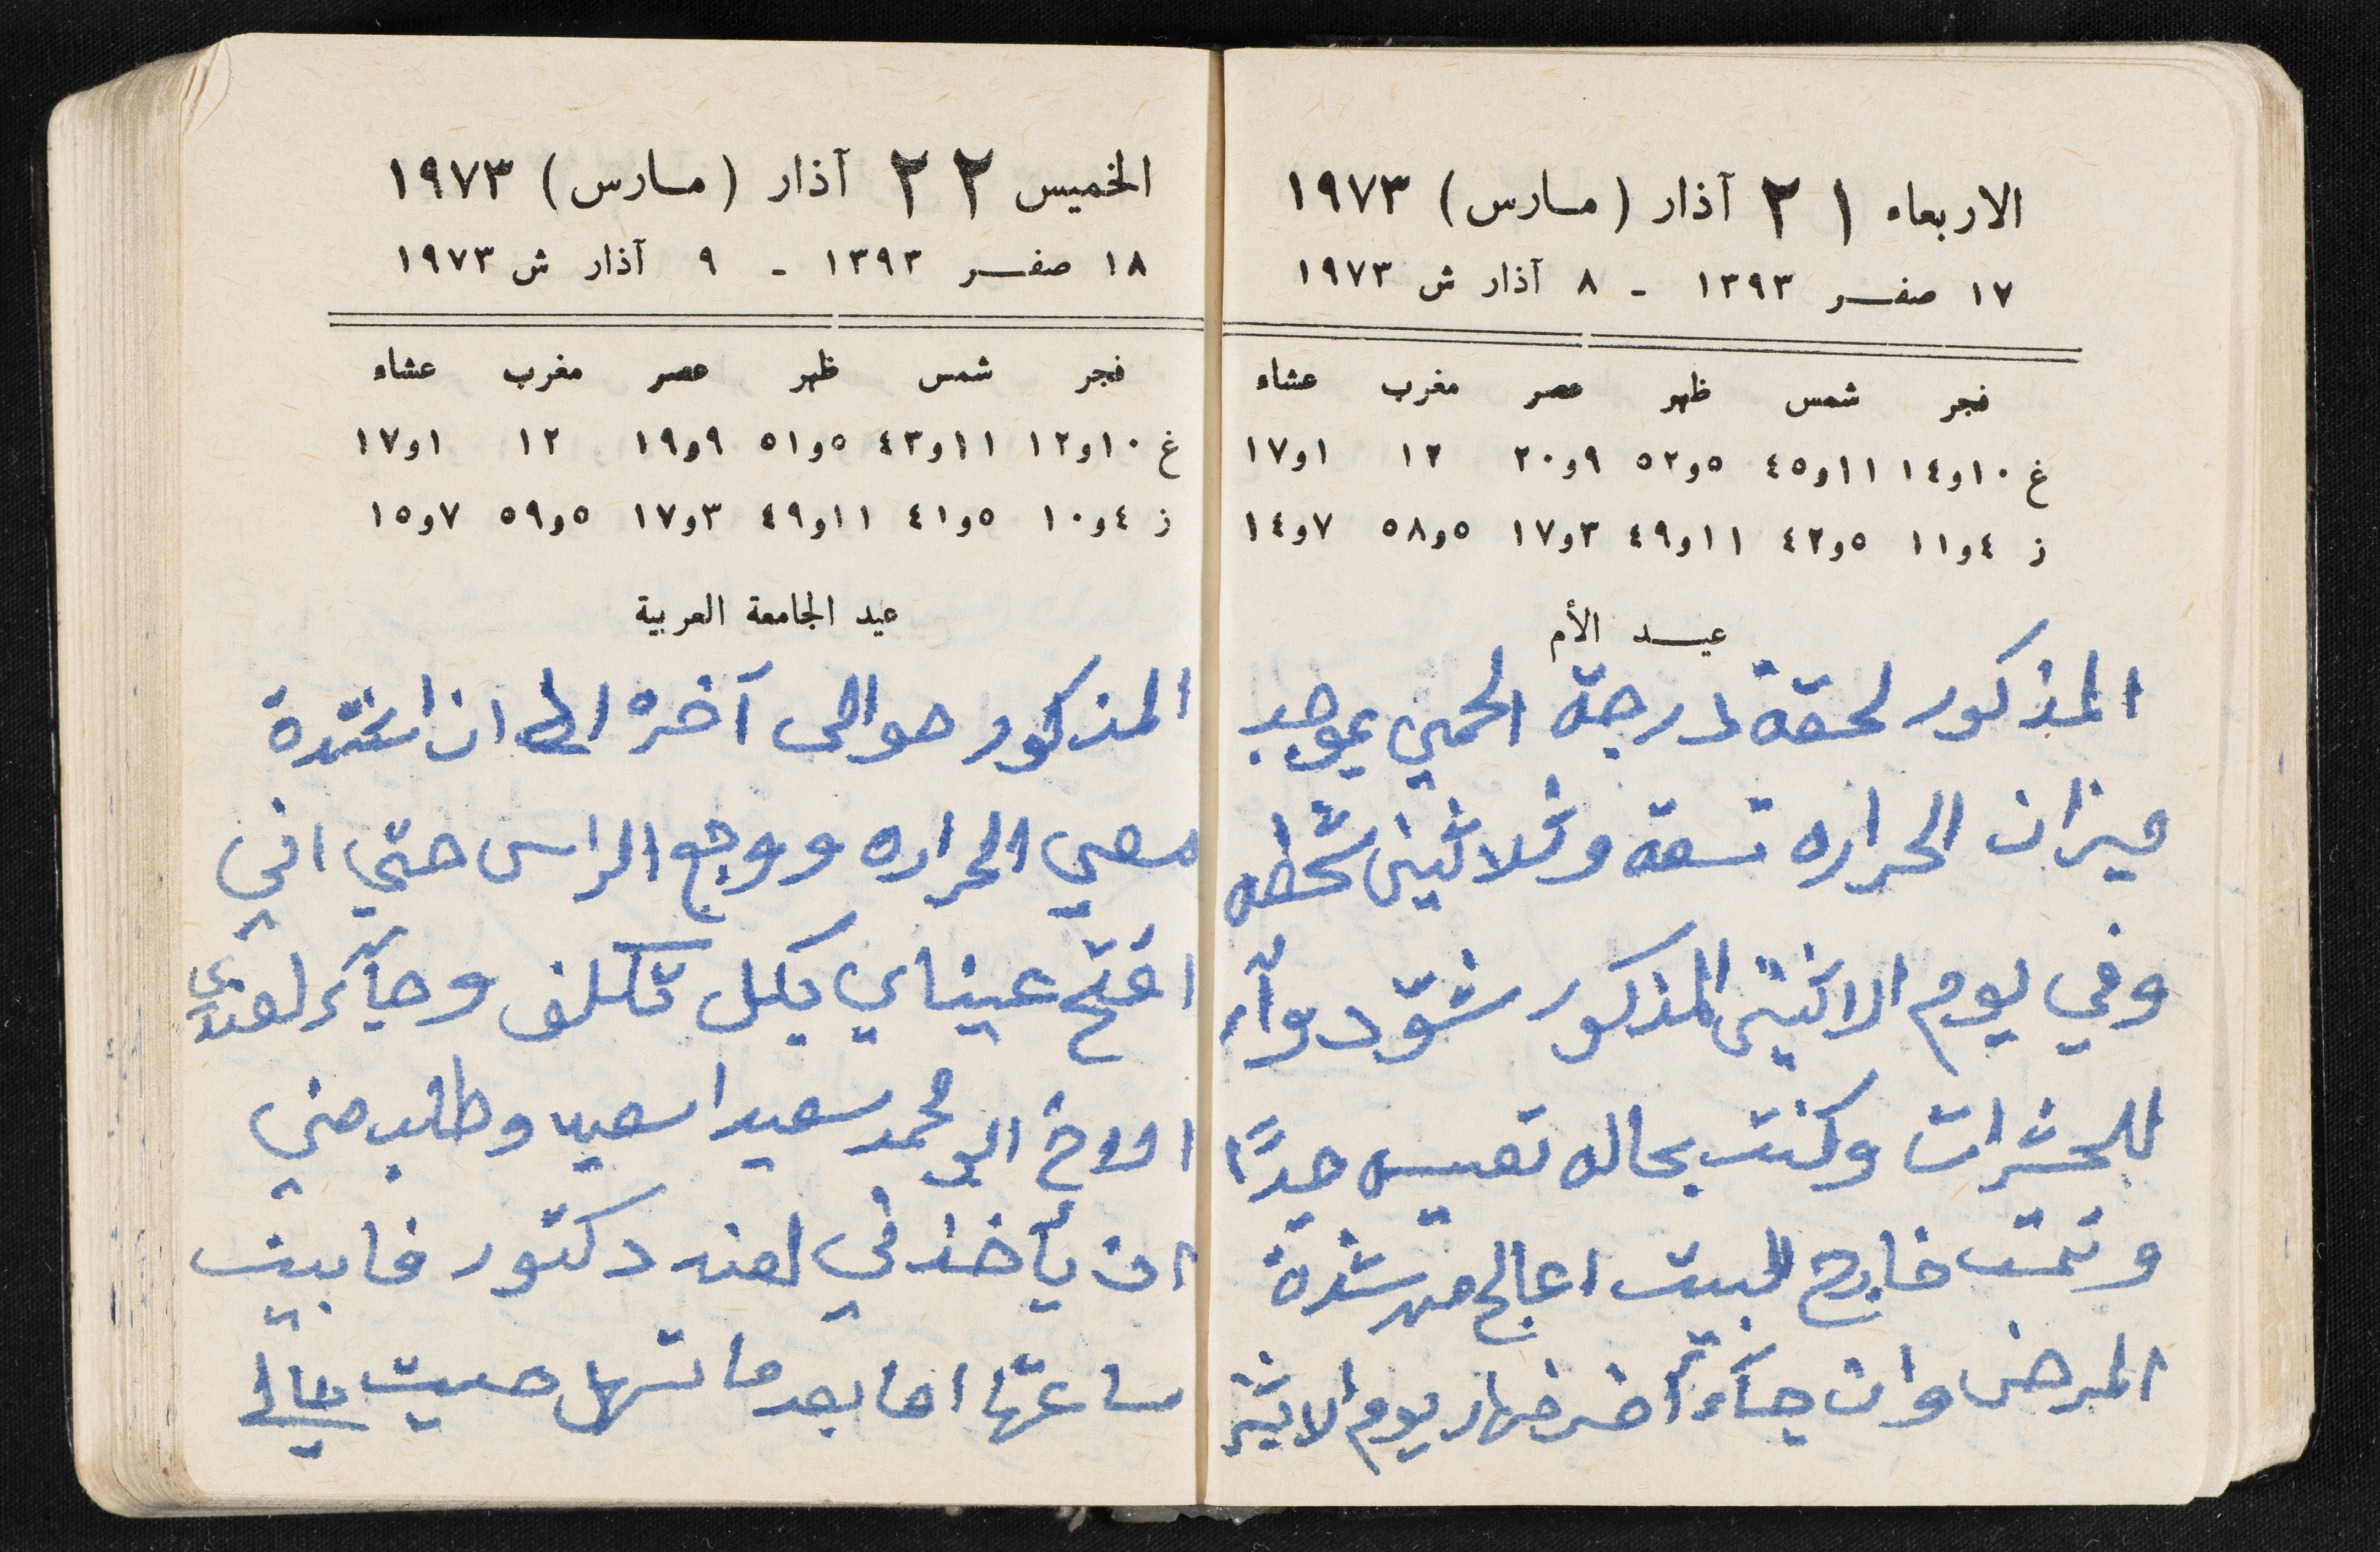 الاربعاء ٢١ آذار (مارس) ١٩٧٣
١٧ صفر ١٣٩٣ - ٨ آذار ش ١٩٧٣
فجر شمس ظهر عصر مغرب عشاء
غ ١٠و١٤ ١١و٤٥ ٥و٥٢ ٩و٢٠ ١٢ ١و١٧
ز ٤و١١ ٥و٤٢ ١١و٤٩ ٣و١٧ ٥و٥٨ ٧و١٤
عيد الأم
المذكور لحقة درجة الحمي بموجب
ميزان الحراره تسعة وثلاثين شحطه
وفي يوم الاثنين المذكور شوّد دوآء
للحشرات وكنت بحاله تعيسه جدًا
ونمت خارج البيت اعالج من شدة
المرض وان جآء آخر نهار يوم الاثنين
الخميس ٢٢ آذار (مارس) ١٩٧٣
١٨ صفر ١٣٩٣ - ٩ آذار ش ١٩٧٣
فجر شمس ظهر عصر مغرب عشاء
غ ١٠و١٢ ١١و٤٣ ٥و٥١ ٩و١٩ ١٢ ١و١٧
ز ٤و١٠ ٥و٤١ ١١و٤٩ ٣و١٧ ٥و٥٩ ٧و١٥
عيد الجامعة العربية
المذكور حوالى آخره الى ان اشتدة
معي الحراره ووجع الراس حتي اني
افتح عيناي بكل تكلف وجآئر لعندي
الاخ ابو محمد سعيد اسعيد وطلب مني
ان يأخذني لعند دكتور فابيت
ساعتها اما بعدما تسهل حسيت بحالي